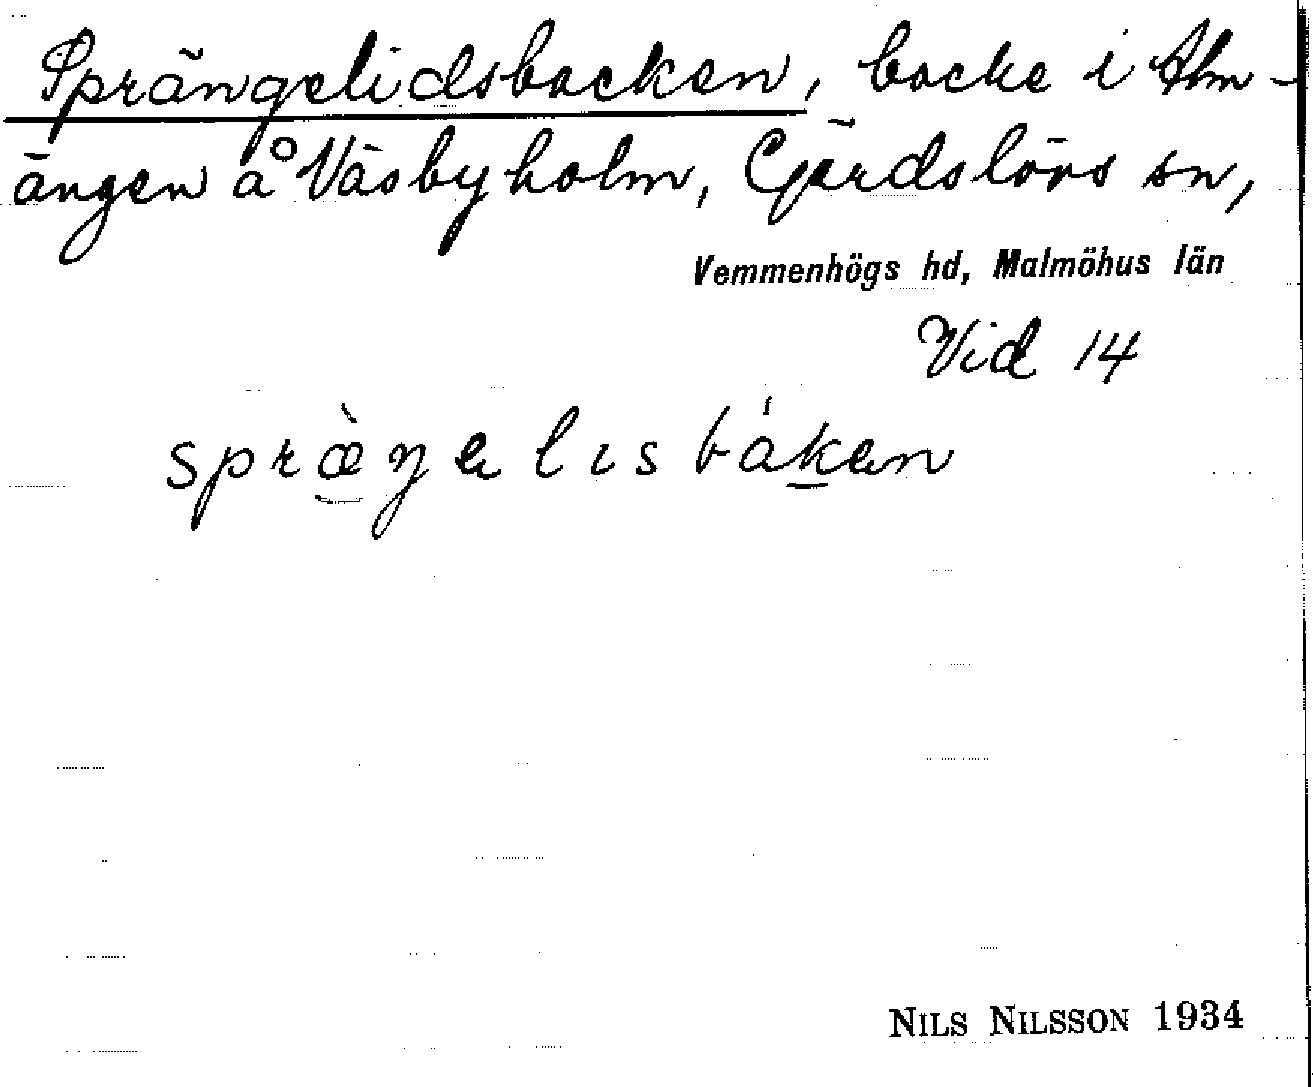 Sprängelidsbacken, backe i Alm-
ängen å Väsbyholm, Gärdslövs sn,
Vemmenhögs hd, Malmöhus län
Vid 14
spræ̀ŋəlısbákən
NILS NILSSON 1934